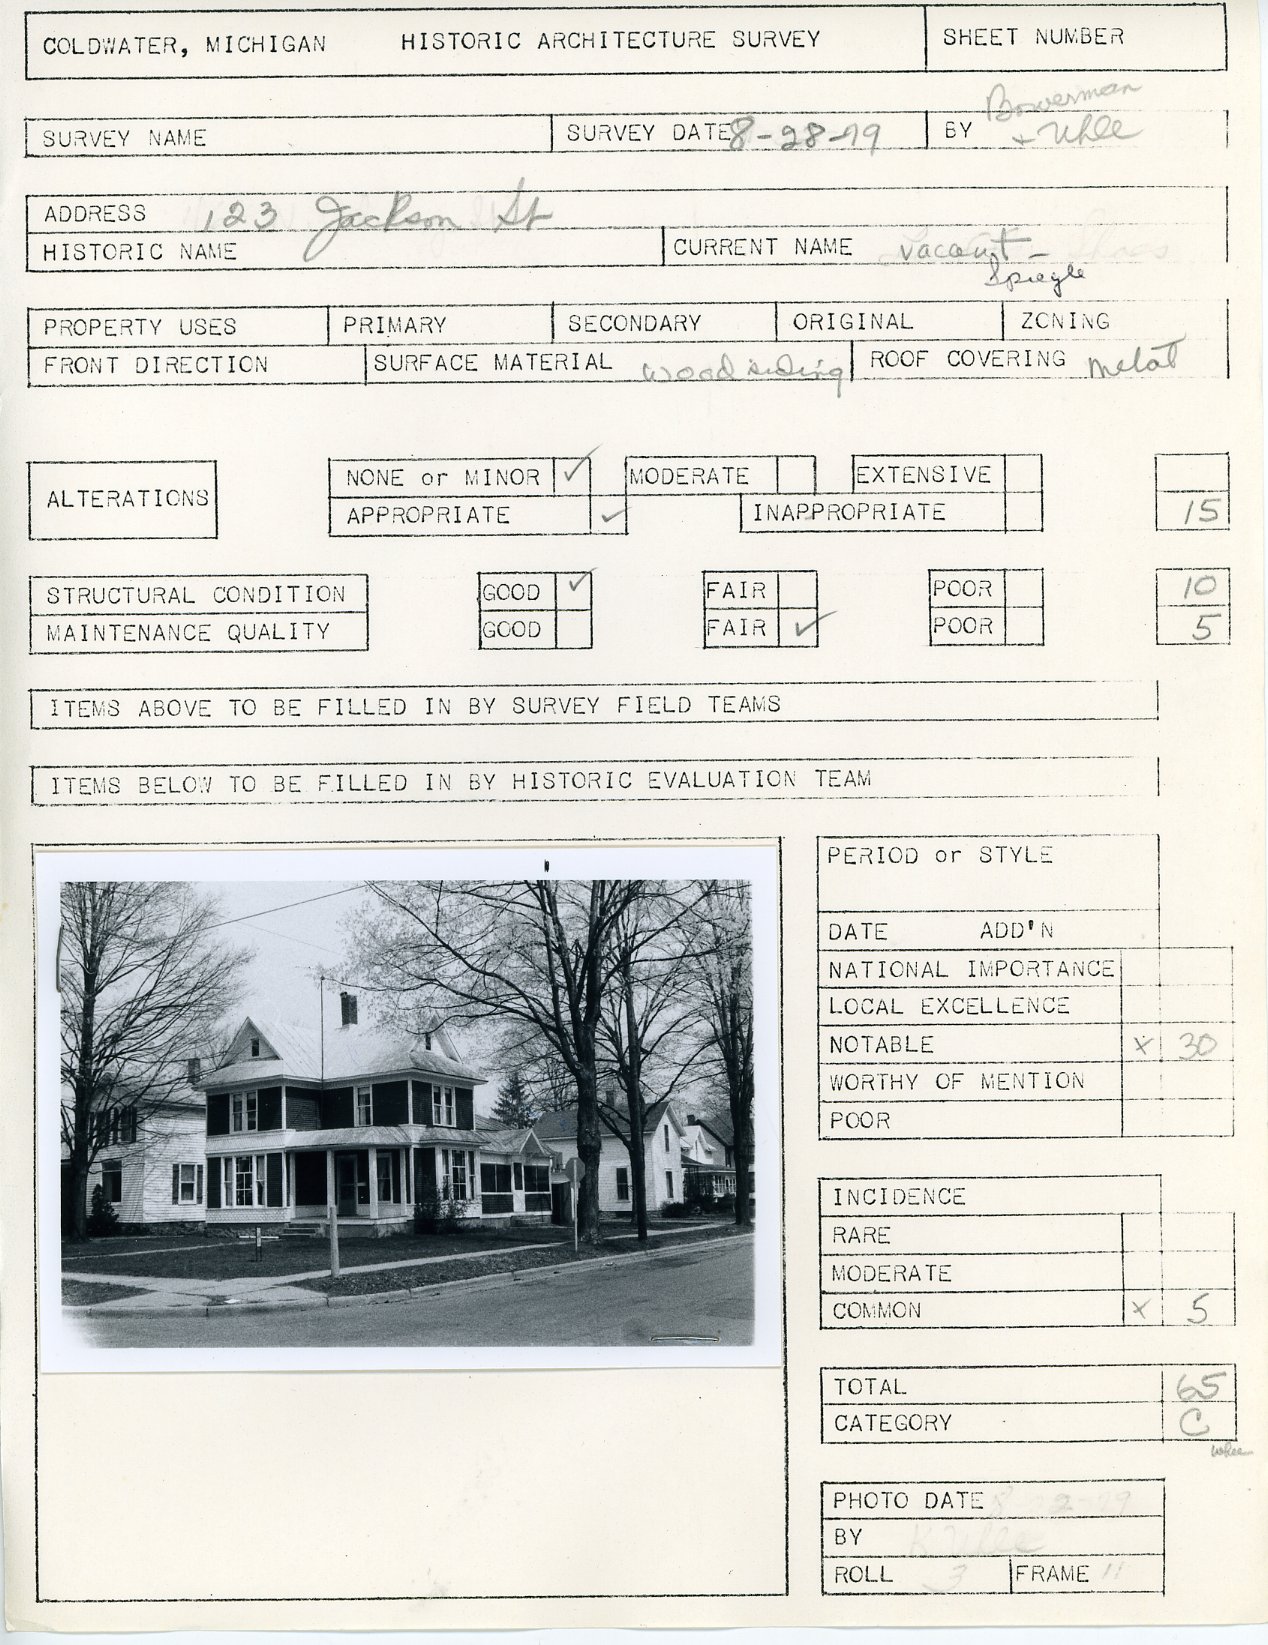 COLDWATER, MICHIGAN HISTORIC ARCHITECTURE SURVEY SHEET NUMBER
SURVEY NAME SURVEY DATE 8-28-79 BY Bowerman
+ Uhle
ADDRESS 123 Jackson St
HISTORIC NAME CURRENT NAME vacant -
Spiegle
PROPERTY USES PRIMARY SECONDARY ORIGINAL ZONING
FRONT DIRECTION SURFACE MATERIAL wood siding ROOF COVERING metal
ALTERATIONS NONE or MINOR ✓ MODERATE EXTENSIVE
APPROPRIATE ✓ INAPPROPRIATE 15
STRUCTURAL CONDITION GOOD ✓ FAIR POOR 10
MAINTENANCE QUALITY GOOD FAIR ✓ POOR 5
ITEMS ABOVE TO BE FILLED IN BY SURVEY FIELD TEAMS
ITEMS BELOW TO BE FILLED IN BY HISTORIC EVALUATION TEAM
PERIOD or STYLE
DATE ADD'N
NATIONAL IMPORTANCE
LOCAL EXCELLENCE
NOTABLE x 30
WORTHY OF MENTION
POOR
INCIDENCE
RARE
MODERATE
COMMON x 5
TOTAL 65
CATEGORY C
PHOTO DATE
BY K Uhle
ROLL 3 FRAME 11